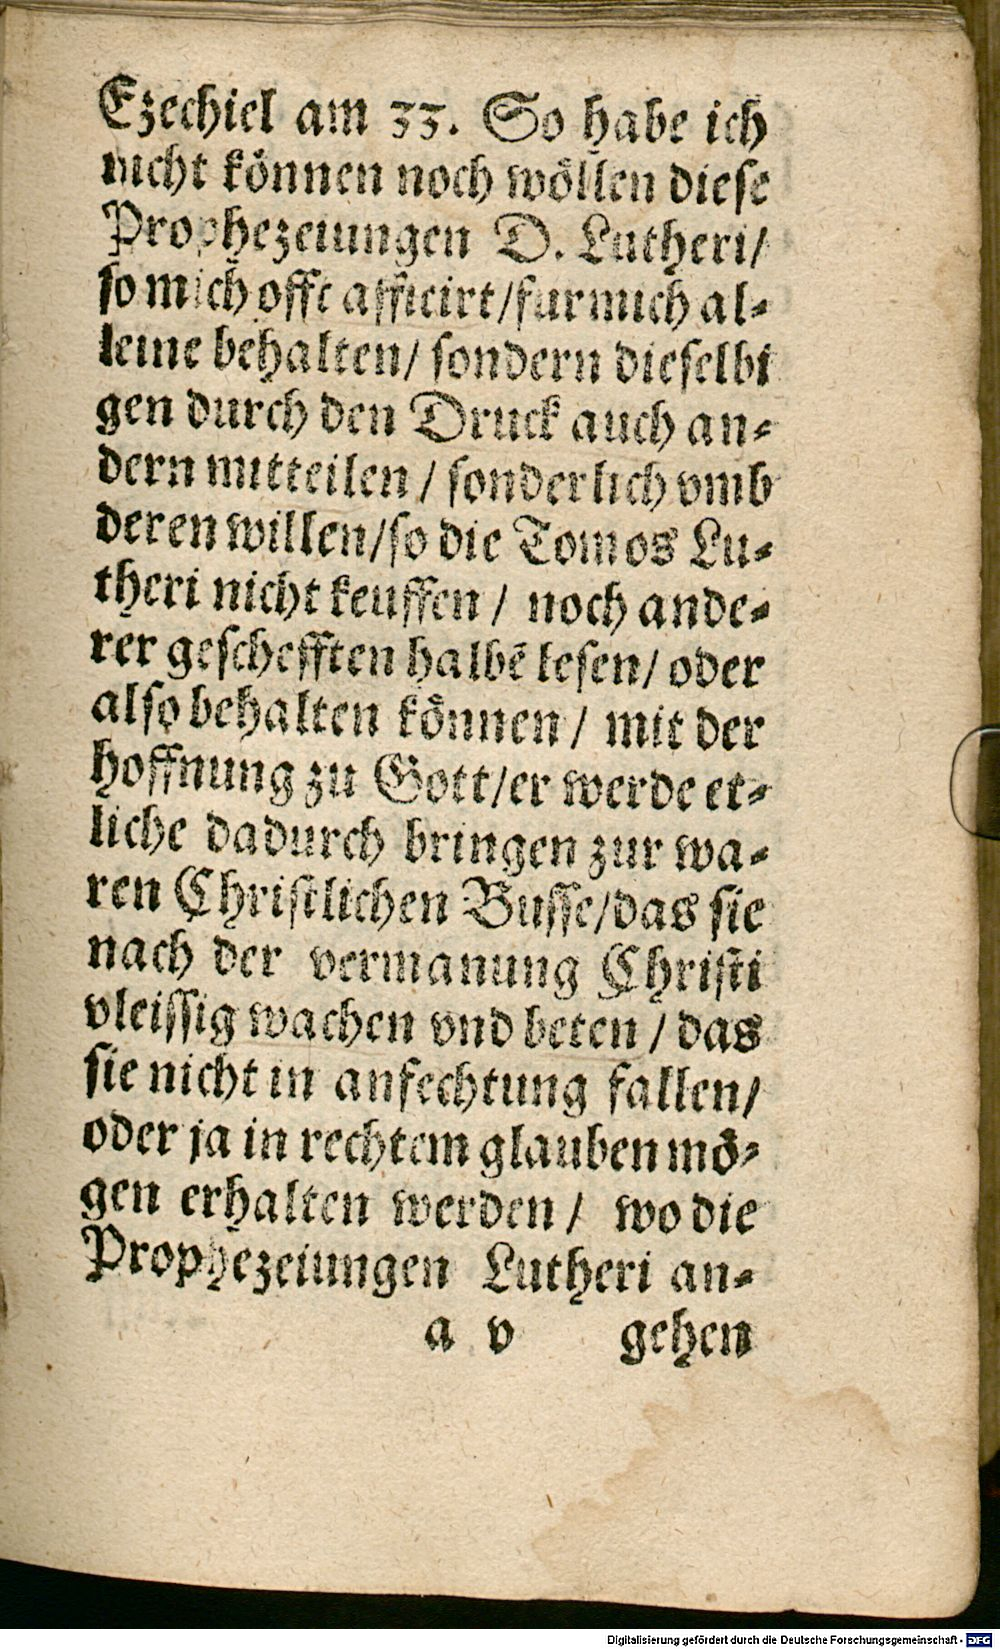 Ezechiel am 33. So habe ich
nicht können noch wöllen diese
Prophezeiungen D. Lutheri/
so mich offt afficirt/fur mich al-
leine behalten/ sondern dieselbi
gen durch den Druck auch an-
dern mitteilen / sonderlich vmb
deren willen/so die Tomos Lu-
theri nicht keuffen / noch ande-
rer geschefften halbē lesen/ oder
also behalten können / mit der
hoffnung zu Gott/er werde et-
liche dadurch bringen zur wa-
ren Christlichen Busse/das sie
nach der vermanung Christi
vleissig wachen vnd beten / das
sie nicht in anfechtung fallen/
oder ja in rechtem glauben mö-
gen erhalten werden / wo die
Prophezeiungen Lutheri an-
a v gehen
Digitalisierung gefördert durch die Deutsche Forschungsgemeinschaft - DFG